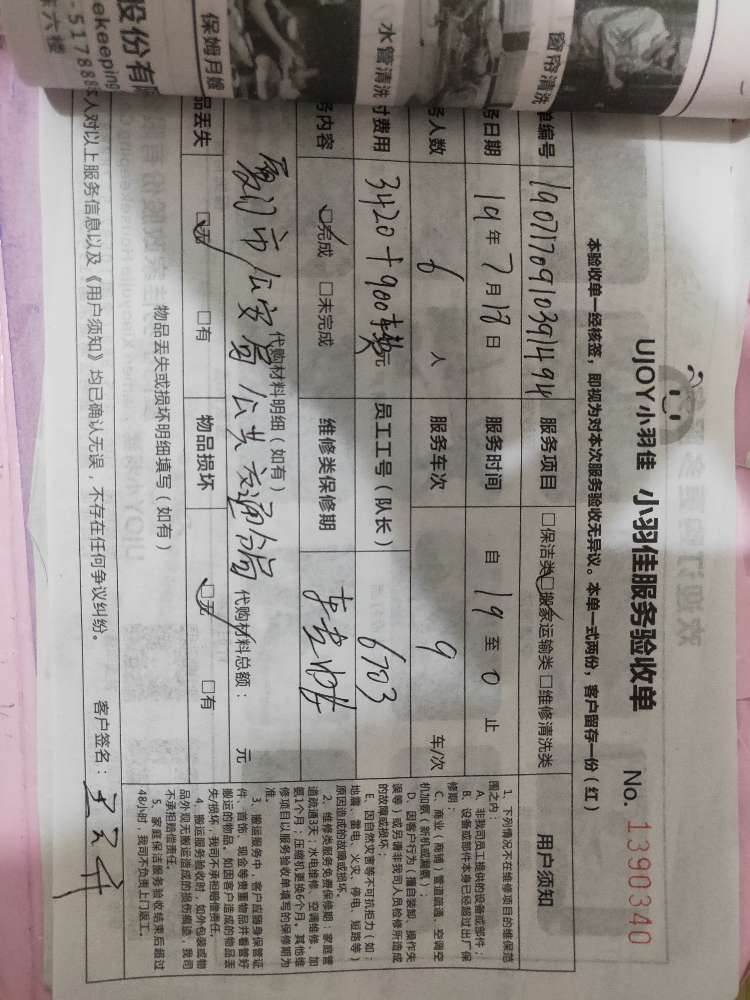 股份有限
ekeeping
-517888
东六楼
保姆月嫂
水管清洗
窗帘清洗
UJOY小羽佳 小羽佳服务验收单 No. 1390340
本验收单一经核签，即视为对本次服务验收无异议。本单一式两份，客户留存一份（红）
单编号 1907170910391494 服务项目 □保洁类☑搬家运输类□维修清洗类
务日期 19年7月18日 服务时间 自19至0止
务人数 6人 服务车次 9车/次
付费用 3420+900 元 员工工号（队长） 6703
务内容 ☑完成 □未完成 维修类保修期
代购材料明细（如有） 代购材料总额： 元
厦门市公安局公共交通分局
品丢失 ☑无 □有 物品损坏 ☑无 □有
物品丢失或损坏明细填写（如有）
本人对以上服务信息以及《用户须知》均已确认无误，不存在任何争议纠纷。 客户签名：
用户须知
1、下列情况不在维修项目的维保范
围之内：
A、非我司员工提供的设备或部件；
B、设备或部件本身已经超过出厂保
修期；
C、商业（商铺）管道疏通、空调空
机加氨（新机或漏氨）；
D、因客户行为（擅自装卸、操作失
误等）或另请非我司人员检修所造成
的故障或损坏；
E、因自然灾害等不可抗拒力（如：
地震、雷电、火灾、停电、短路等）
原因造成的故障或损坏。
2、维修类服务免费保修期：家庭管
道疏通3天；水电维修、空调维修、加
氨1个月；压缩机更换6个月。其他维
修项目以服务验收单填写的保修期为
准。
3、搬运服务中，客户应随身保管证
件、首饰、现金等贵重物品并看管好
搬运的物品。如因客户造成的物品丢
失/损坏，我司不承担赔偿责任。
4、搬运服务验收时，如外包装或物
品外观无搬运造成的损伤痕迹，我司
不承担赔偿责任。
5、家庭保洁服务验收结束后超过
48小时，我司不负责上门返工。